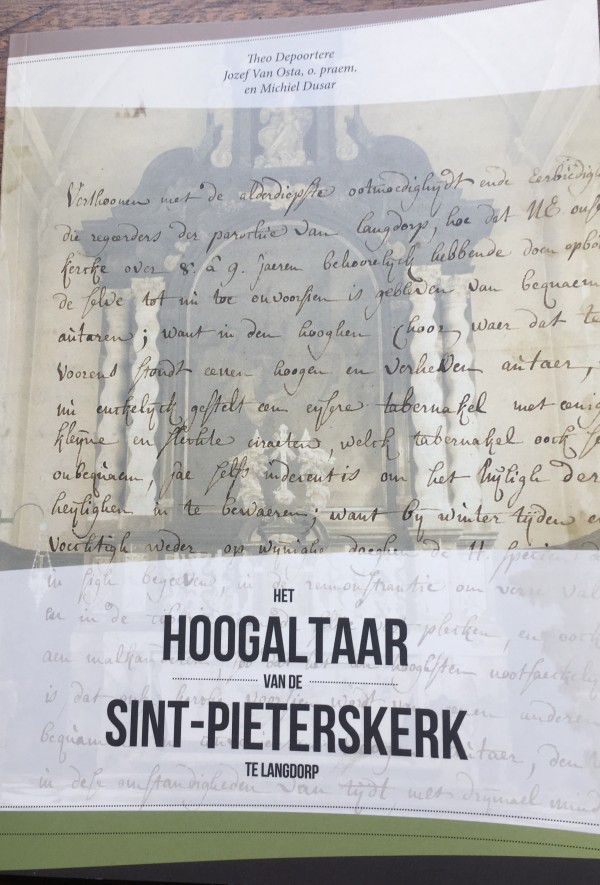 Theo Depoortere
Jozef Van Osta, o. praem.
en Michiel Dusar
Verthoonen met de alderdiepste ootmoedighijdt ende Eerbiedigh
die regeerders der parochie van Langdorp, hoe dat UE ons
kercke over 8. à 9. jaeren behoorelijck hebbende doen opbo
de selve tot nu toe onvoorsien is gebleven van bequaem
autaren; want in den hooghen Choor, waer dat te
voorens stondt eenen hoogen en verheven autaer,
nu enckelijck gestelt een eysere tabernakel met eenig
kleyne en slechte cieraeten, welck tabernakel oock se
onbequaem, jae selfs indecent is om het Hijligh der
heylighen in te bewaeren; want bij winter tijden e
vochtigh weder op wijnighe daeghen de H. specien
in sigh begeeven, in de remonstrantie om verre val
en in de plecken, en oock
aen malkanderen, hooghsten nootsaeckelij
is dat anderen
bequam autaer, den
in dese omstandigheden van tijdt met drijmael mind
HET
HOOGALTAAR
VAN DE
SINT-PIETERSKERK
TE LANGDORP